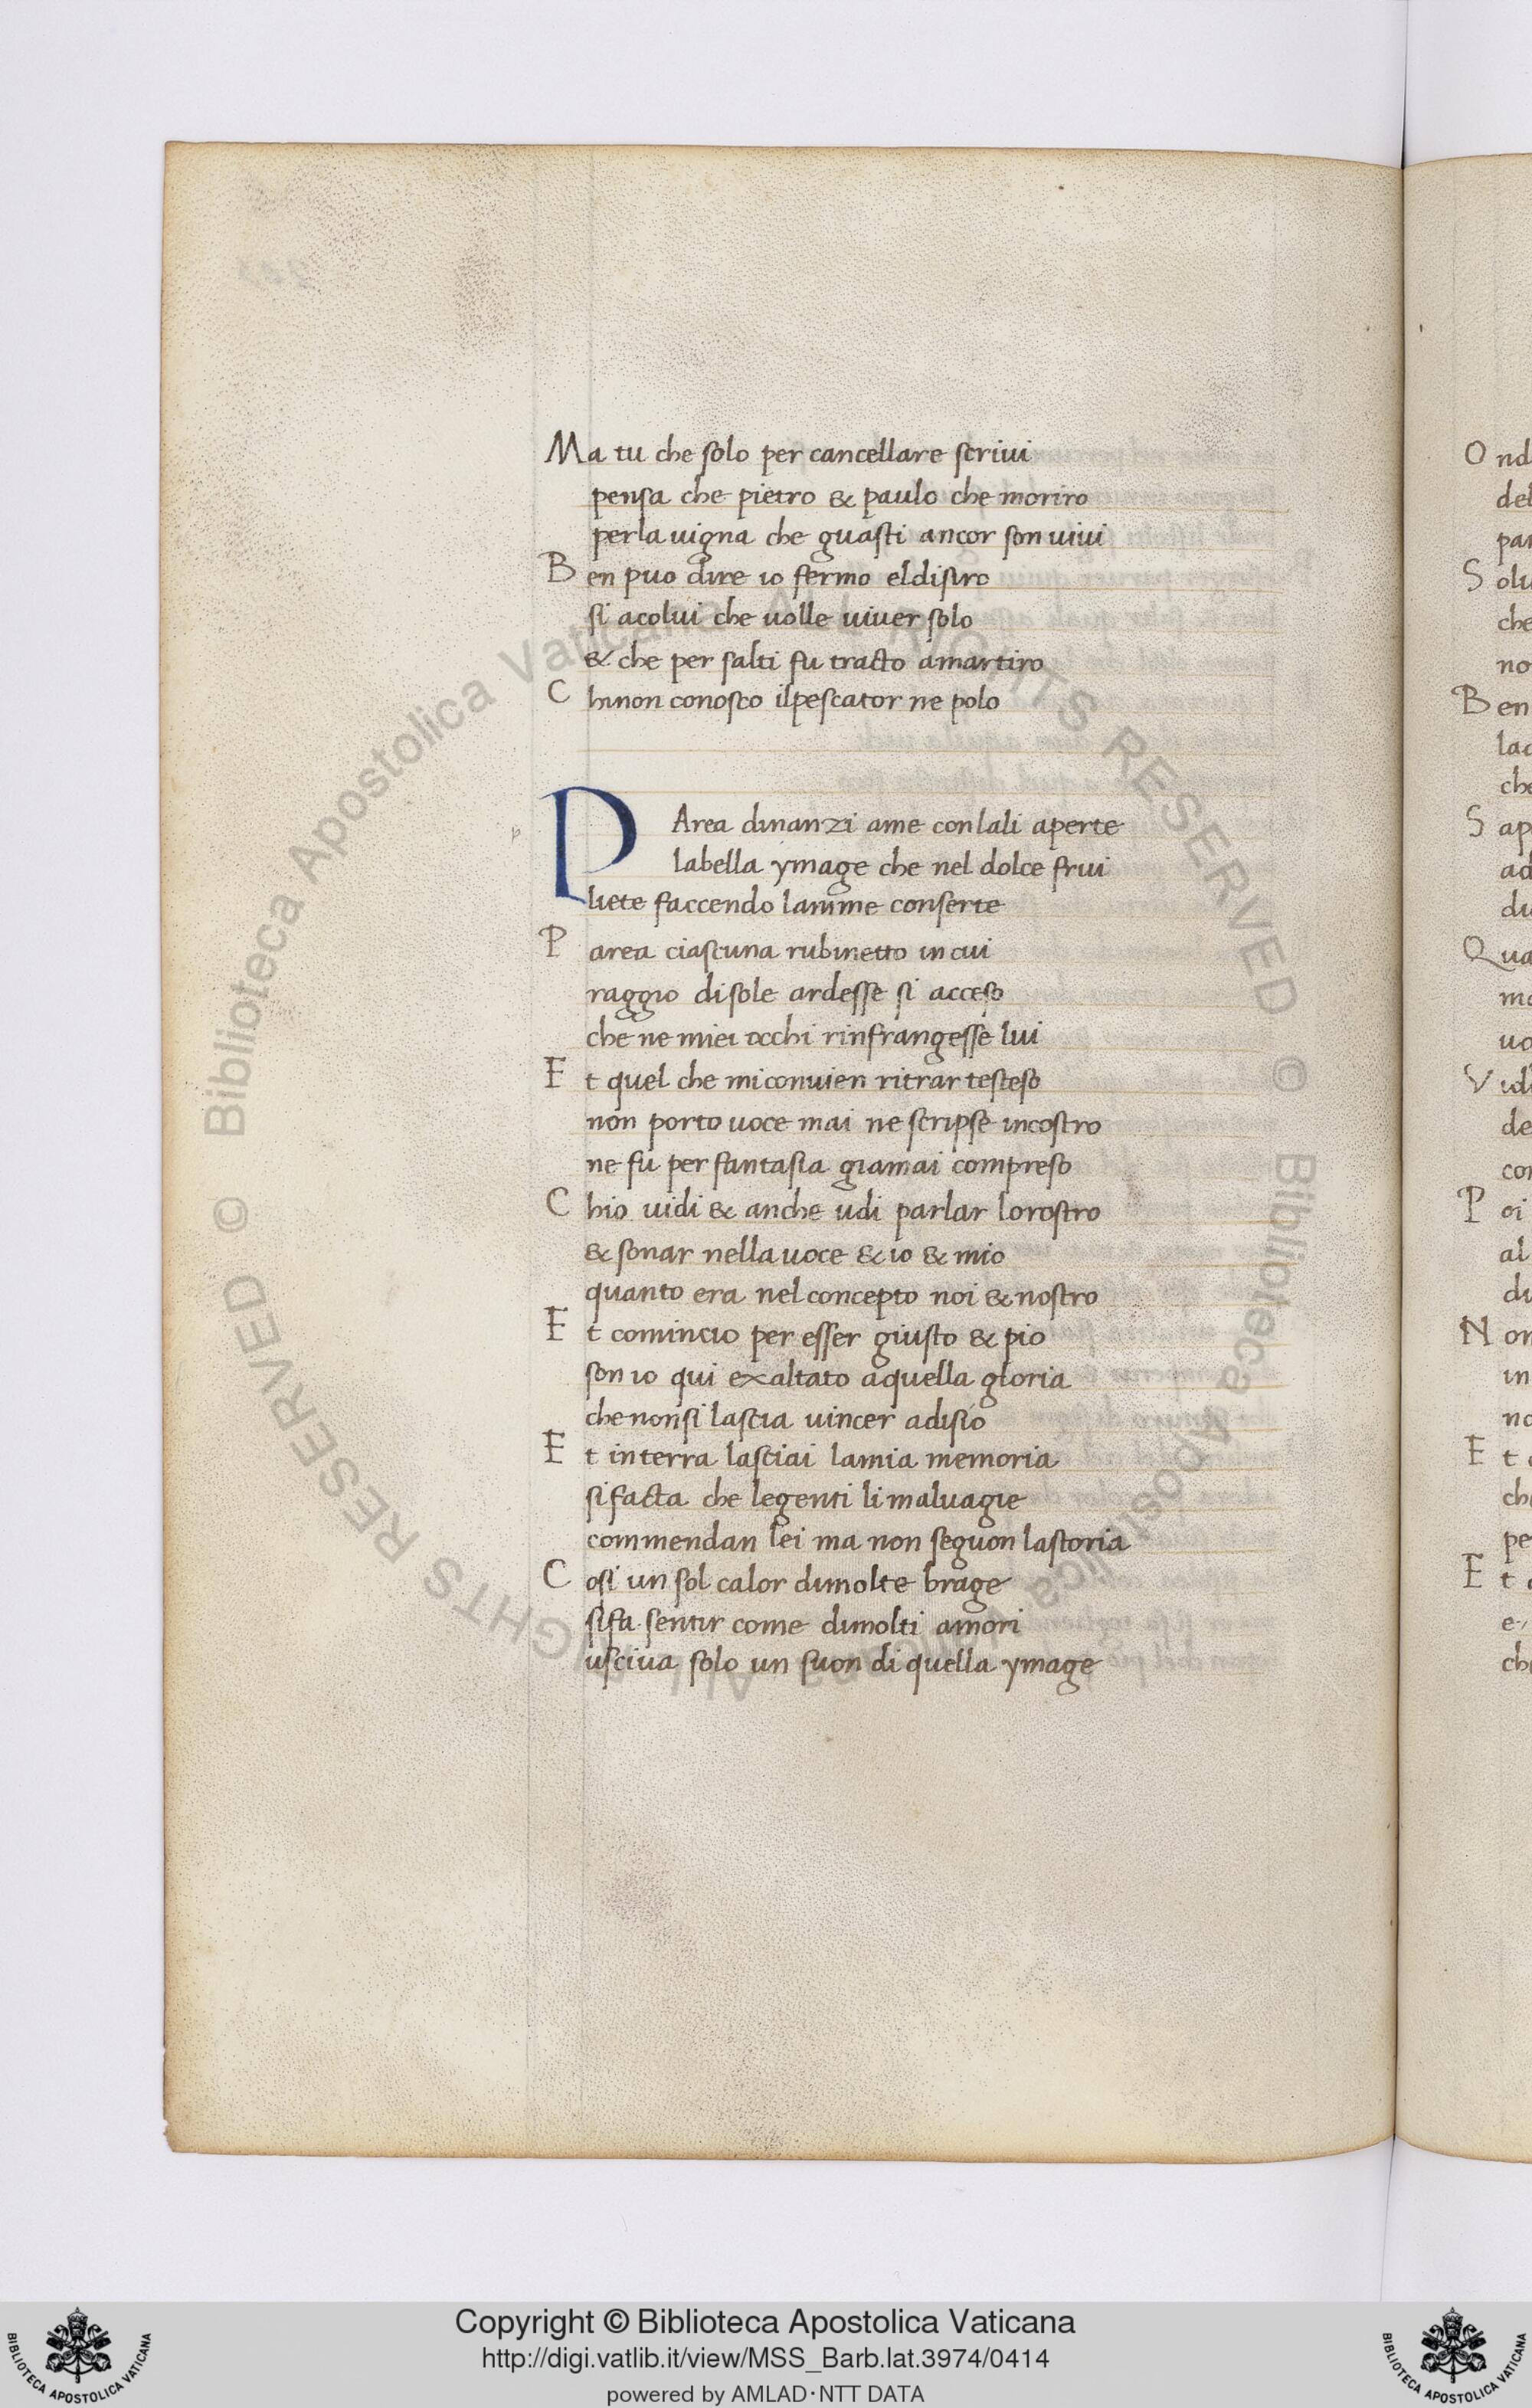 Ma tu che solo per cancellare scriui
pensa che pietro & paulo che moriro
perla uigna che guasti ancor son uiui
Ben puo dire io fermo eldisiro
si acolui che uolle uiuer solo
& che per salti fu tracto amartiro
Chinon conosco ilpescator ne polo
PArea dinanzi ame conlali aperte
labella ymage che nel dolce frui
liete faccendo lanime conserte
Parea ciascuna rubinetto in cui
raggio disole ardesse si acceso
che ne miei occhi rinfrangesse lui
Et quel che miconuien ritrar testeso
non porto uoce mai ne scripse incostro
ne fu per fantasia giamai compreso
Chio uidi & anche udi parlar lorostro
& sonar nella uoce & io & mio
quanto era nel concepto noi & nostro
Et comincio per esser giusto & pio
son io qui exaltato aquella gloria
che nonsi lascia uincer adisio
Et in terra lasciai lamia memoria
sifacta che legenti li maluagie
commendan lei ma non seguon lastoria
Cosi un sol calor dimolte brage
sifa sentir come dimolti amori
usciua solo un suon di quella ymage
Ond
del
par
Solu
che
no
Ben
lac
che
Sap
ad
du
Qua
mo
uo
Vidi
de
con
Poi
al
di
Non
in
no
Et
ch
pe
Et
e
ch
© Biblioteca Apostolica Vaticana ALL RIGHTS RESERVED
© Biblioteca Apostolica Vaticana ALL RIGHTS RESERVED
Copyright © Biblioteca Apostolica Vaticana
http://digi.vatlib.it/view/MSS_Barb.lat.3974/0414
powered by AMLAD·NTT DATA
BIBLIOTECA APOSTOLICA VATICANA
BIBLIOTECA APOSTOLICA VATICANA